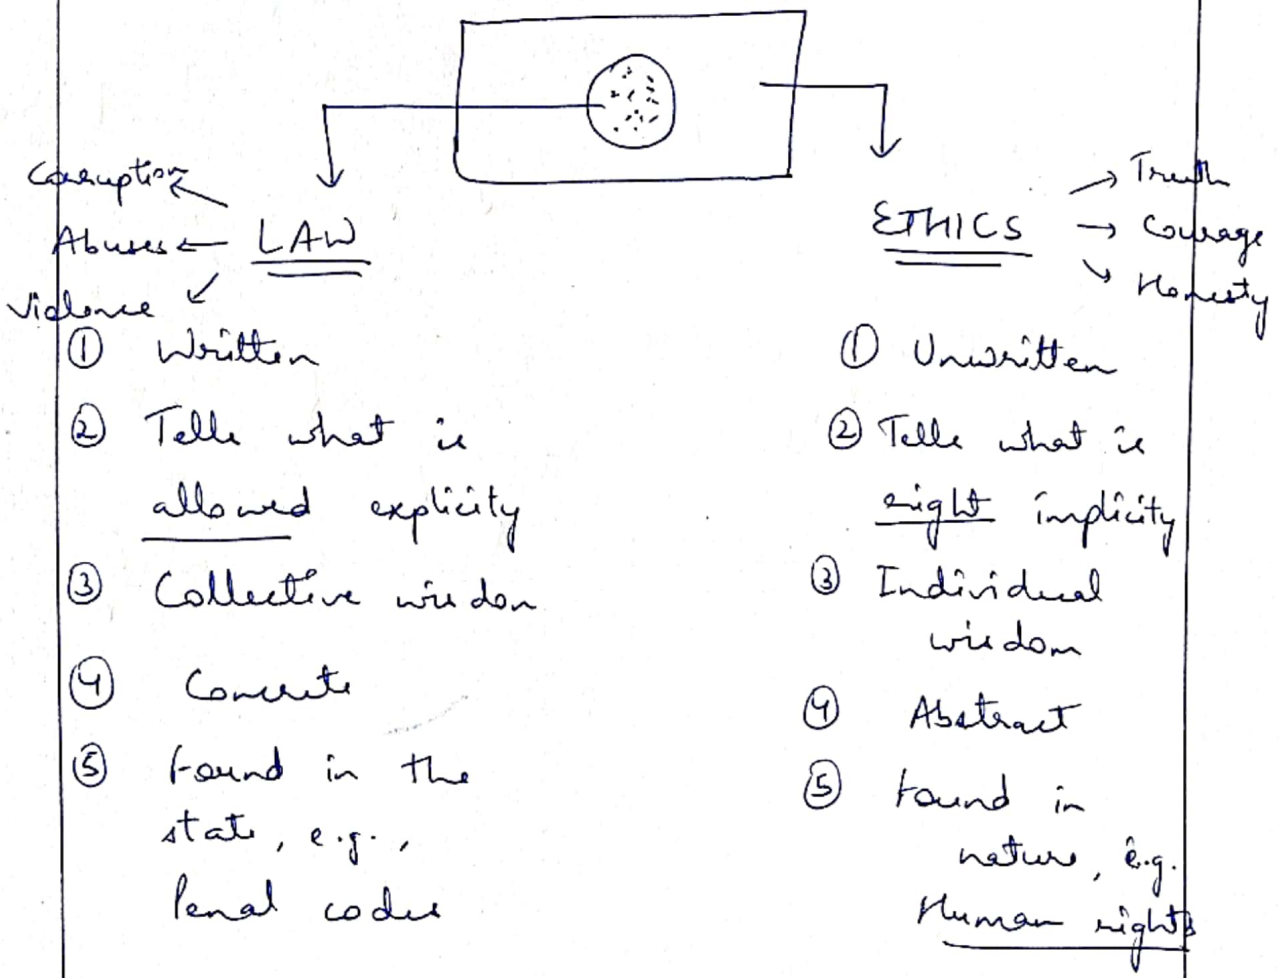 Corruption
Abuses
Violence
LAW
① Written
② Tells what is
allowed explicity
③ Collective wisdom
④ Concrete
⑤ Found in the
state, e.g.,
Penal codes
ETHICS
Truth
Courage
Honesty
① Unwritten
② Tells what is
right implicity
③ Individual
wisdom
④ Abstract
⑤ Found in
nature, e.g.
Human rights